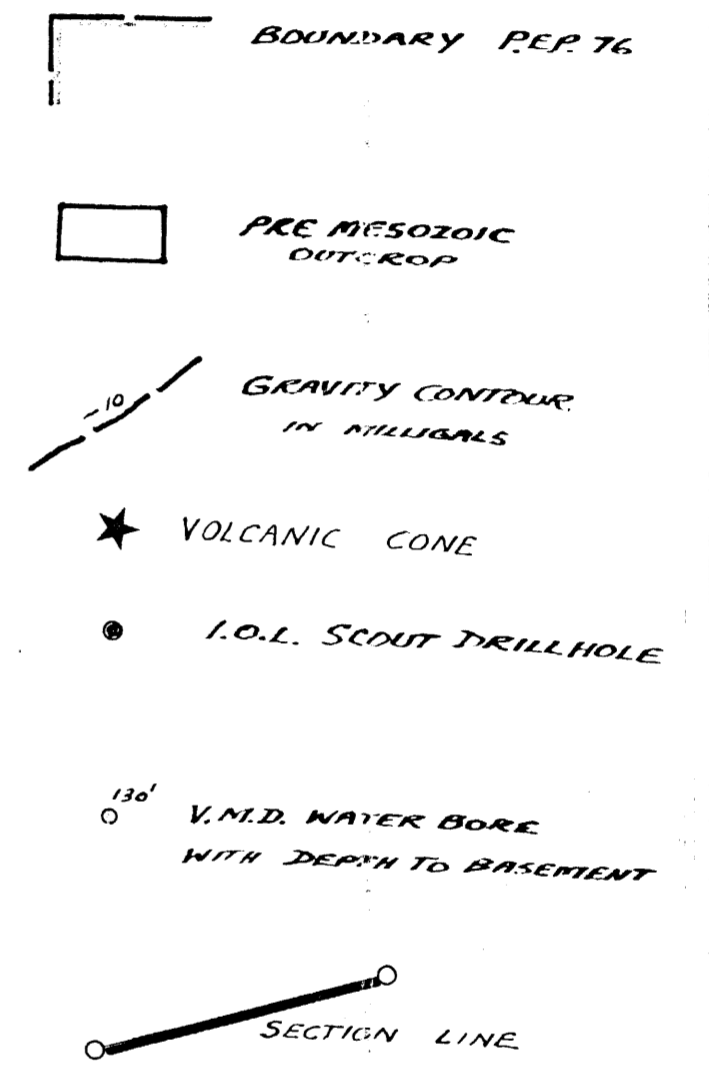 BOUNDARY P.E.P. 76
PRE MESOZOIC
OUTCROP
-10
GRAVITY CONTOUR
IN MILLIGALS
VOLCANIC CONE
I.O.L. SCOUT DRILLHOLE
130'
V.M.D. WATER BORE
WITH DEPTH TO BASEMENT
SECTION LINE